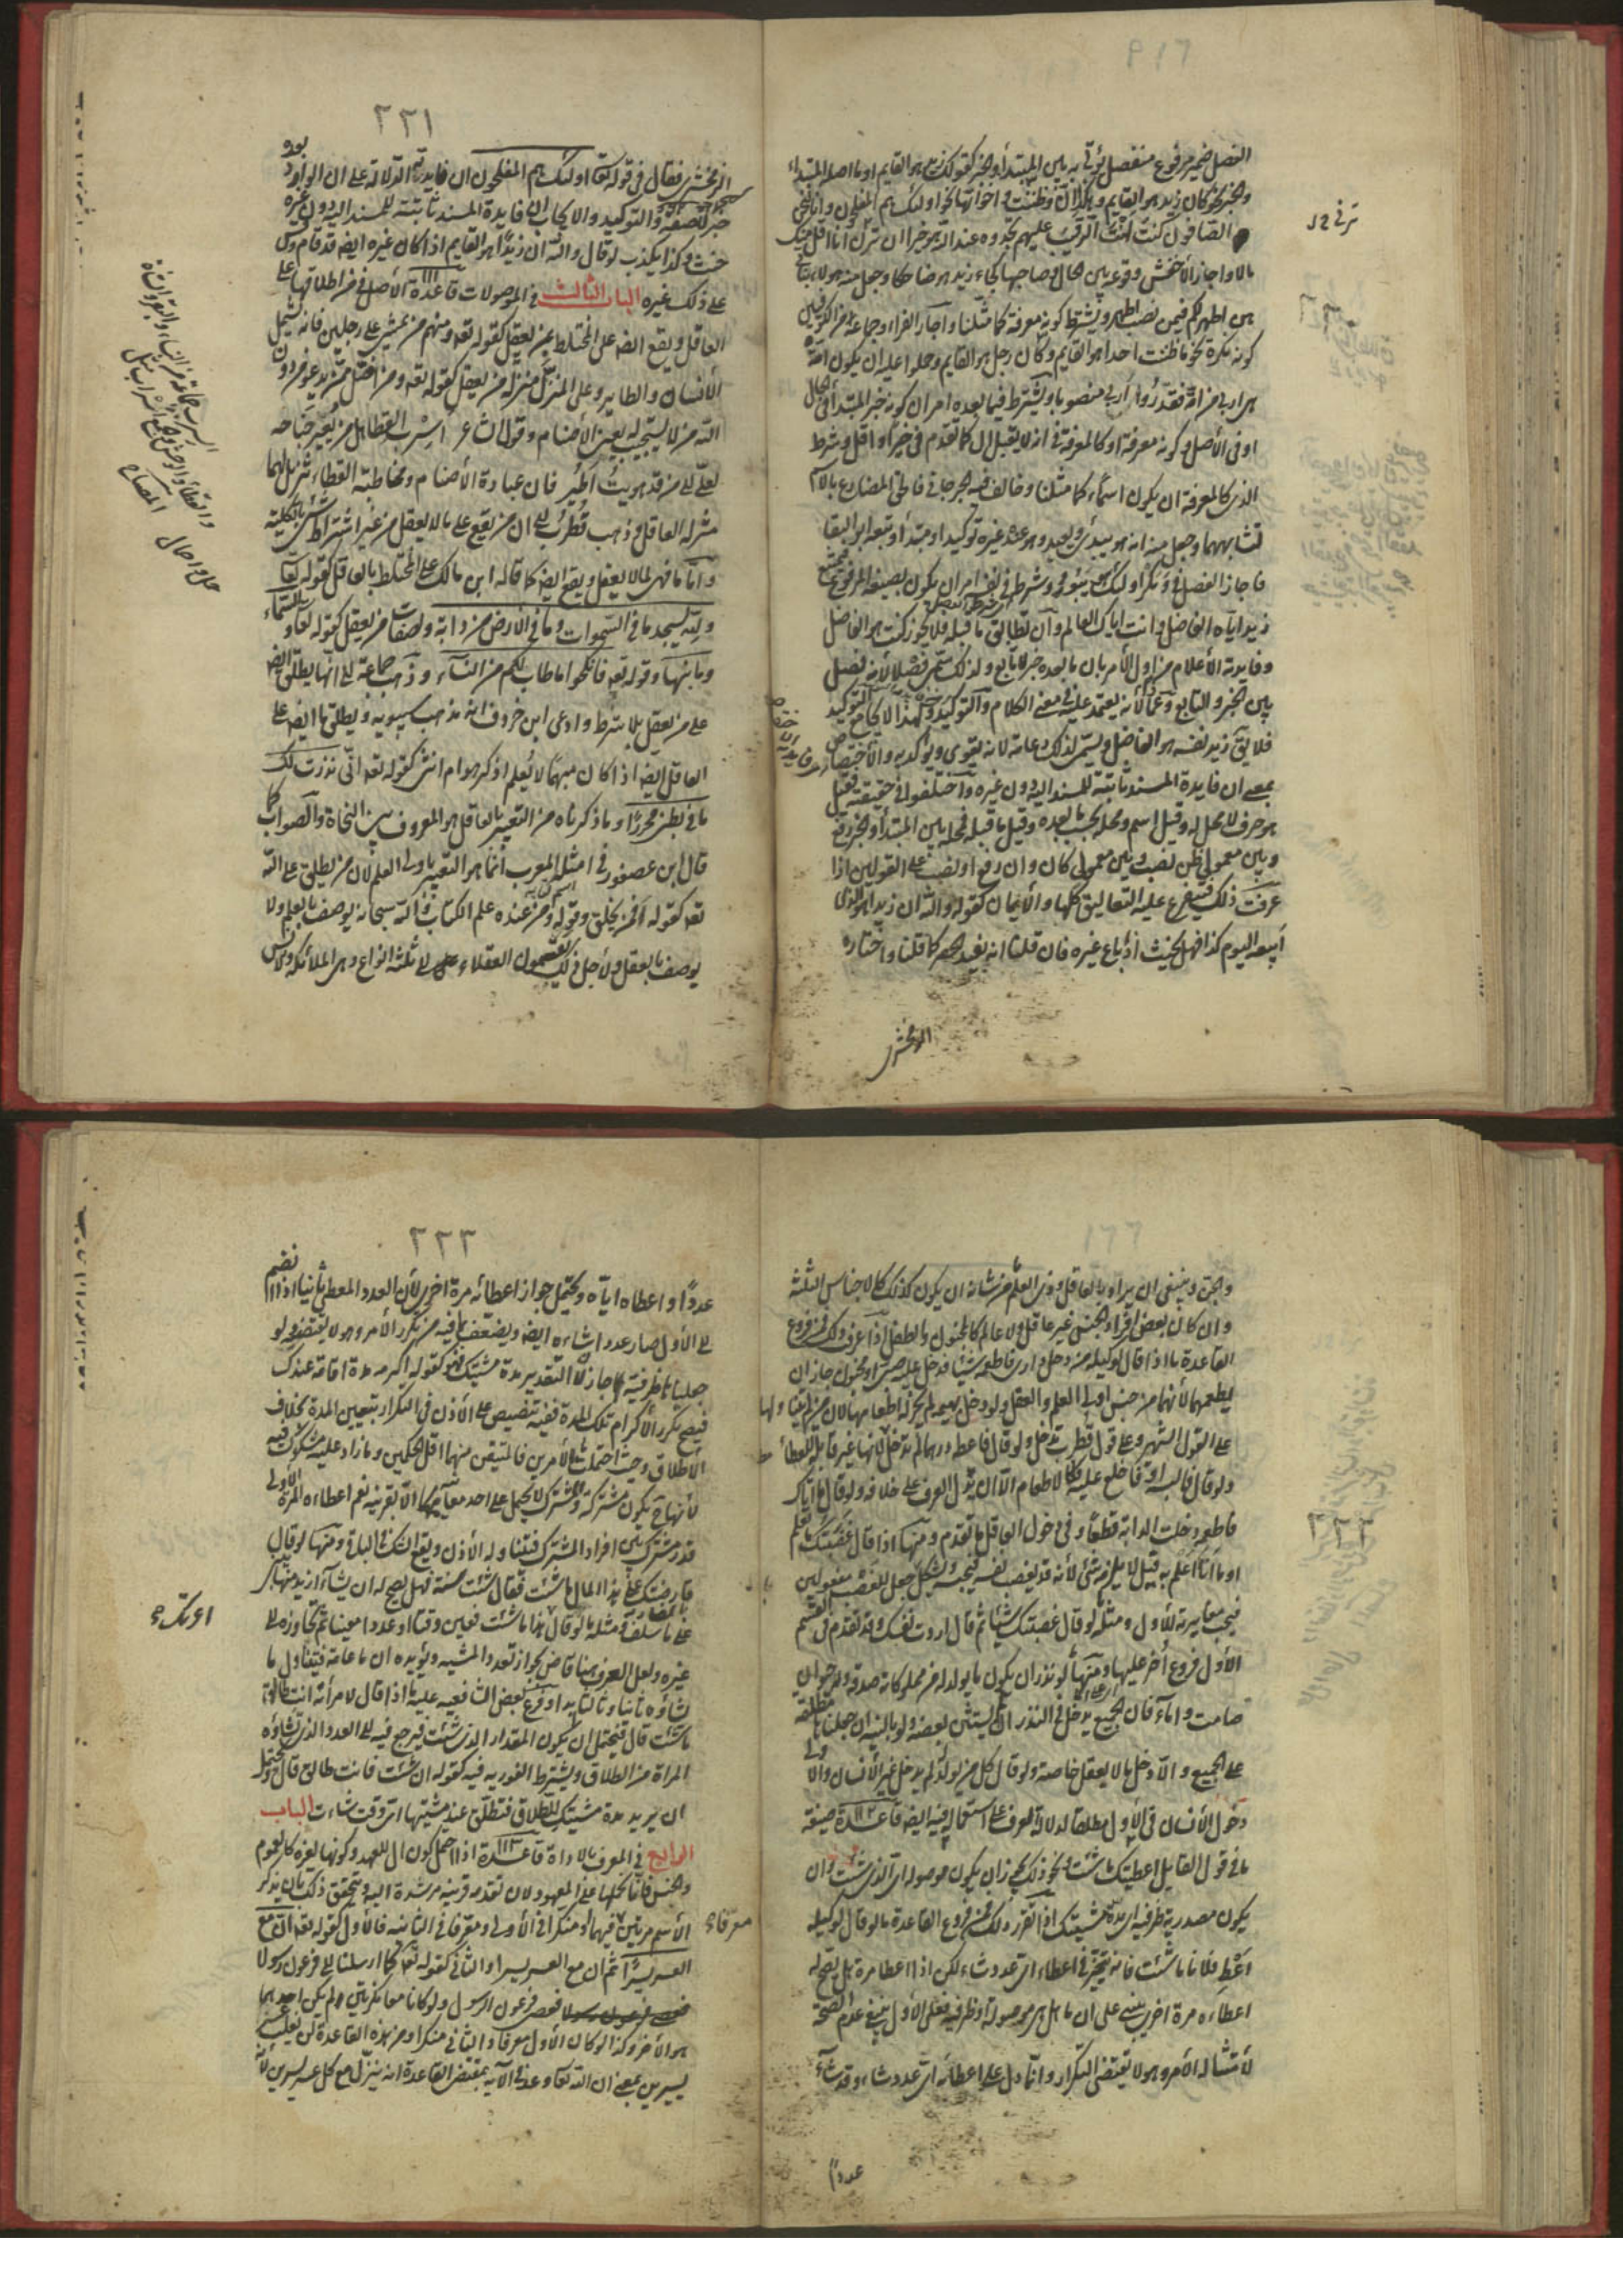 الفصل ضمير مرفوع منفصل يؤتى به بين المبتدأ والخبر كقولك زيد هو القايم او ما اصله المبتداء
والخبر نحو كان زيد هو القايم وهكذا ان وظننت و اخواتهما نحو اولئك هم المفلحون وانا لنحن
الصافون كنت انت الرقيب عليهم تجدوه عند الله هو خيرا ان ترن انا اقل منك
مالا واجاز الأخفش وقوعه بين الحال وصاحبها كجاء زيد هو ضاحكا وجعل منه هولاء بناتي
هن اطهر لكم فيمن نصب اطهر ويشترط كونه معرفة كما مثلنا واجاز الفراء وجماعة من الكوفيين
كونه نكرة نحو ما ظننت احدا هو القايم وكان رجل هو القايم وحملوا عليه ان يكون امة
هى اربى من امة فقدروا اربى منصوبا ويشترط فيما بعده امران كونه خبر المبتدأ فى الحال
او فى الأصل وكونه معرفة او كالمعرفة فى انه لا يقبل ال كما تقدم فى خيرا واقل وشرط
الذى كالمعرفة ان يكون اسما كما مثلنا وخالف فيه الجرجانى فالحق المضارع بالاسم
لتشابههما وجعل منه انه هو يبدئ ويعيد وهو عند غيره توكيد او مبتدأ وتبعه ابو البقا
فاجاز الفصل فى ومكر اولئك هو يبور وشرط فى نفسه امران ان يكون بصيغة المرفوع فيمتنع
زيد اياه الفاضل وانت اياك العالم وان تطابق ما قبله فلا يجوز كنت هو الفاضل
وفايدته الأعلام من اول الأمر بان ما بعده خبر لا تابع ولذلك سمى فصلا لأنه فصل
بين الخبر والتابع وعمادا لأنه يعتمد عليه فى معنى الكلام والتوكيد ولهذا لا يجامع التوكيد
فلا يقال زيد نفسه هو الفاضل ويسمى لذلك دعامة لانه يقوى ويؤكد به والأختصاص
بمعنى ان فايدة المسند ثابتة للمسند اليه دون غيره واختلفوا فى حقيقته فقيل
هو حرف لا محل له وقيل اسم ومحله بحسب ما بعده وقيل ما قبله فمحله بين المبتدأ والخبر رفع
وبين معمولى ظن نصب وبين معمولى كان وان رفع او نصب على القولين اذا
عرفت ذلك فيتفرع عليه التعاليق كلها والأيمان كقوله والله ان زيدا هو الذى
ابيعه اليوم كذا فهل يحنث اذا باع غيره فان قلنا انه يفيد الحصر كما قلنا واختاره
الزمخشرى
٢٢١
الزمخشرى فقال فى قوله تعالى اولئك هم المفلحون ان فايدته الدلالة على ان الوارد بعده
خبر لا صفة والتوكيد والايجاب ان فايدة المسند ثابتة للمسند اليه دون غيره
حنث وكذا يكذب لو قال والله ان زيدا هو القايم اذا كان غيره ايضا قد قام وقس
على ذلك غيره الباب الثالث فى الموصولات قاعدة ١١١ الأصل فى من اطلاقها على
العاقل ويقع ايضا على المختلط بمن يعقل كقوله تعالى ومنهم من يمشى على رجلين فانه يشمل
الأنسان والطاير وعلى المنزل منزلة من يعقل كقوله تعالى ومن اضل ممن يدعو من دون
الله من لا يستجيب له يعنى الأصنام وقول الشاعر أسرب القطا هل من يعير جناحه
لعلى الى من قد هويت اطير فان عبادة الأصنام ومخاطبة القطاء تنزيل لهما
منزلة العاقل وذهب قطرب الى ان من يقع على ما لا يعقل من غير اشتراط شىء بالكلية
واما ما فهى لما لا يعقل ويقع ايضا كما قاله ابن مالك على المختلط بالعاقل كقوله تعالى
ولله يسجد ما فى السموات وما فى الأرض من دابة ولصفات من يعقل كقوله تعالى والسماء
وما بنيها وقوله تعالى فانكحوا ما طاب لكم من النساء وذهب جماعة الى انها يطلق ايضا
على من يعقل بلا شرط وادعى ابن خروف انه مذهب سيبويه ويطلق ما ايضا على
العاقل ايضا اذا كان مبهما لا يعلم اذكر هو ام انثى كقوله تعالى انى نذرت لك
ما فى بطنى محررا وما ذكرناه من التعبير بالعاقل هو المعروف بين النحاة والصواب كما
قال ابن عصفور فى امثلة المعرب انما هو التعبير باولى العلم لان من يطلق على الله
تعالى كقوله افمن يخلق وقوله ومن عنده علم الكتاب فالله سبحانه يوصف بالعلم ولا
يوصف بالعقل ولأجل ذلك يقسمون العقلاء الى ثلثة انواع وهى الملائكة والانس
والجن وينبغى ان يراد بالعاقل وذى العلم من شأنه ان يكون كذلك كالاجناس الثلثة
وان كان بعض افراد الجنس غير عاقل ولا عالم كالمجنون والطفل اذا عرفت ذلك فمن فروع
القاعدة ما اذا قال لوكيله من دخل دارى فاطعمه شيئا فدخل عليه صبى او مجنون جاز ان
يطعمهما لأنهما من جنس اولى العلم والعقل ولو دخل بهيمة لم يجز له اطعامها لان من لم يتناولها
على القول الشهير وعلى قول قطرب تدخل ولو قال فاعطه درهما لم تدخل لانها غير قابلة للعطاء
ولو قال فالبسه او فاخلع عليه فكالاطعام الا ان يدل العرف على خلافه ولو قال ما اتاك
فاطعمه دخلت الدابة قطعا وفى دخول العاقل ما تقدم ومنها اذا قال غصبتك ما تعلم
او ما انا اعلم به قيل لا يلزمه شئ لأنه قد يغصب نفسه فيحبسه ويشكل بجعل الغصب مفعولين
فيجب مغايرته للأول ومثله لو قال غصبتك شيئا ثم قال اردت نفسك وقد تقدم فى القسم
الأول فروع أخر عليها ومنها لو نذر ان يكون ما يولد له من مملوكاته صدقة وله حيوان
صامت واماء فان الجميع يدخل فى النذر الا ان يستثنى بعضه ولو بالنية ان جعلنا ما مطلقة
على الجميع والا دخل ما لا يعقل خاصة ولو قال كل من يولد له لم يدخل غير الأنسان والاولى
دخول الأنسان فى الأول مطلقا لدلالة العرف على استعماله فيه ايضا قاعدة ١١٢ صيغة
ما فى قول القايل اعطيتك ما شئت ونحو ذلك يجوز ان يكون موصولة اى الذى شئت وان
يكون مصدرية ظرفية اى مدة مشيتك اذا تقرر ذلك فمن فروع القاعدة ما لو قال لوكيله
اعط فلانا ما شئت فانه يتخير فى اعطاء اى عدد شاء لكن اذا اعطا مرة هل يصح له
اعطاءه مرة اخرى يبنى على ان ما هل هى موصولة او ظرفية فعلى الأول يتجه عدم الصحة
لأمتثاله الأمر وهو لا يقتضى التكرار وانما دل على اعطائه اى عدد شاء وقد شاء
عددا
٢٢٣
عددا واعطاه اياه ويحتمل جواز اعطائه مرة اخرى لأن العدد المعطى ثانيا اذا انضم
الى الأول صار عددا شاءه ايضا ويضعف بما فيه من تكرر الأمر وهو لا يقتضيه ولو
جعلنا ما ظرفية جاز لأن التقدير مدة مشيتك فهو كقوله اكرمه مدة اقامته عندك
فيصح تكرر الأكرام تلك المدة ففيه تنصيص على الأذن فى التكرار بتعيين المدة بخلاف
الأطلاق وحيث احتملت ما الأمرين فالمتيقن منهما اقل الحكمين وما زاد عليه مشكوك فيه
لأنها ح يكون مشتركة والمشترك لا يحمل على احد معانيه الا بقرينة نعم اعطاءه المرة الأولى
قدر مشترك بين افراد المشترك فيتناوله الأذن ويقع الشك فى الباقى ومنها لو قال
قارضتك على هذا المال ما شئت فقال شئت سنة فهل يصح له ان يشاء ازيد منها يبنى
على ما سلف ومثله ما لو قال بهذا ما شئت فعين وقتا او عددا معينا ثم تجاوزه الى
غيره ولعل العرف هنا قاض بجواز تعدد المشية ويؤيده ان ما عامة فيتناول ما
شاؤه ثانيا وثالثا وفرع بعض الشافعية عليه ما اذا قال لامرأته انت طالق
ما شئت قال فيحتمل ان يكون المقدار الذى شئت فيرجع فيه الى العدد الذى تشاؤه
المراة من الطلاق ويشترط الفورية فيه كقوله ان شئت فانت طالق قال ويحتمل
ان يريد مدة مشيتك للطلاق فتطلق عند مشيتها اى وقت شاءت الباب
الرابع فى المعرف بالاداة قاعدة ١١٣ اذا احتمل كون ال للعهد وكونها لغيره كالعموم
والجنس فانا نحملها على المعهود لان تقدمه قرينة مرشدة اليه ويتحقق ذلك بان يذكر
الأسم مرتين فيهما او منكرا فى الأول ومعرفا فى الثانية فالأول كقوله تعالى ان مع
العسر يسرا ثم ان مع العسر يسرا والثانى كقوله تعالى كما ارسلنا الى فرعون رسولا
فعصى فرعون الرسول ولو كانا معا نكرتين لم يكن احدهما
هو الأخر وكذا لو كان الأول معرفا والثانى منكرا ومن هذه القاعدة لن يغلب عسر
يسرين بمعنى ان الله تعالى وعد فى الآية بمقتضى القاعدة انه ينزل مع كل عسر يسرين لانه
معرفا